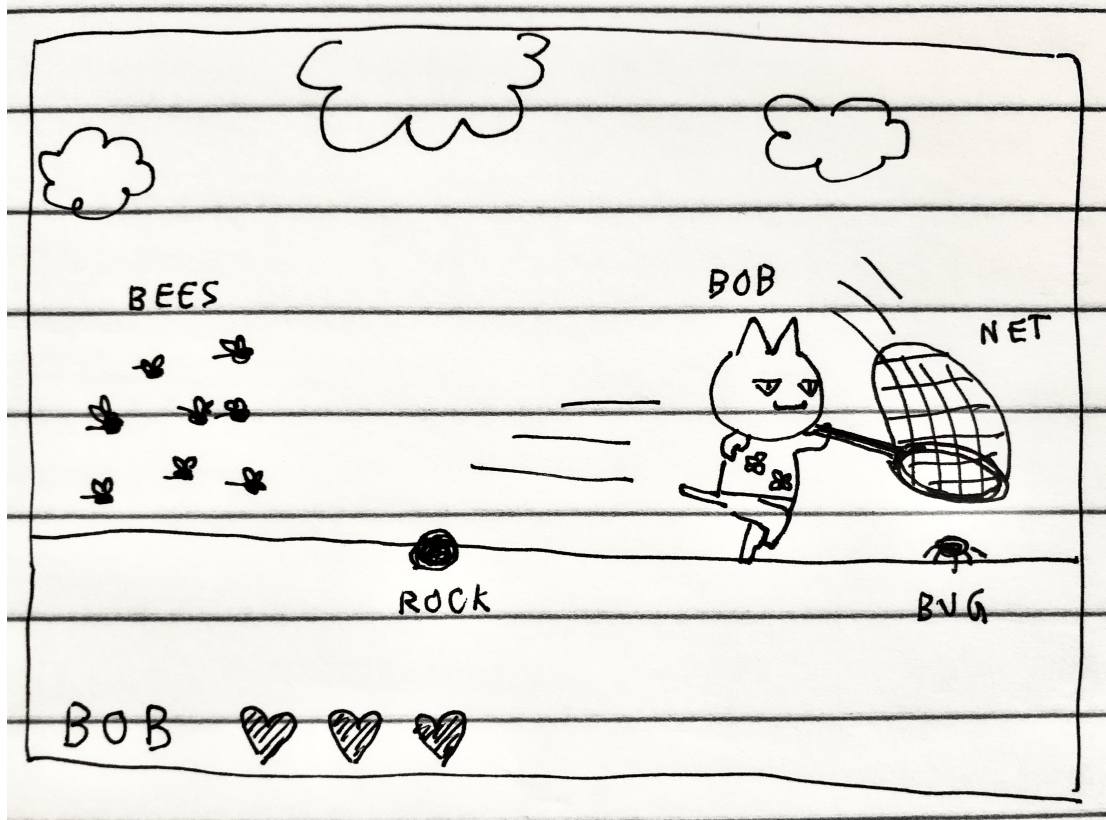 BEES
BOB
NET
ROCK
BUG
BOB